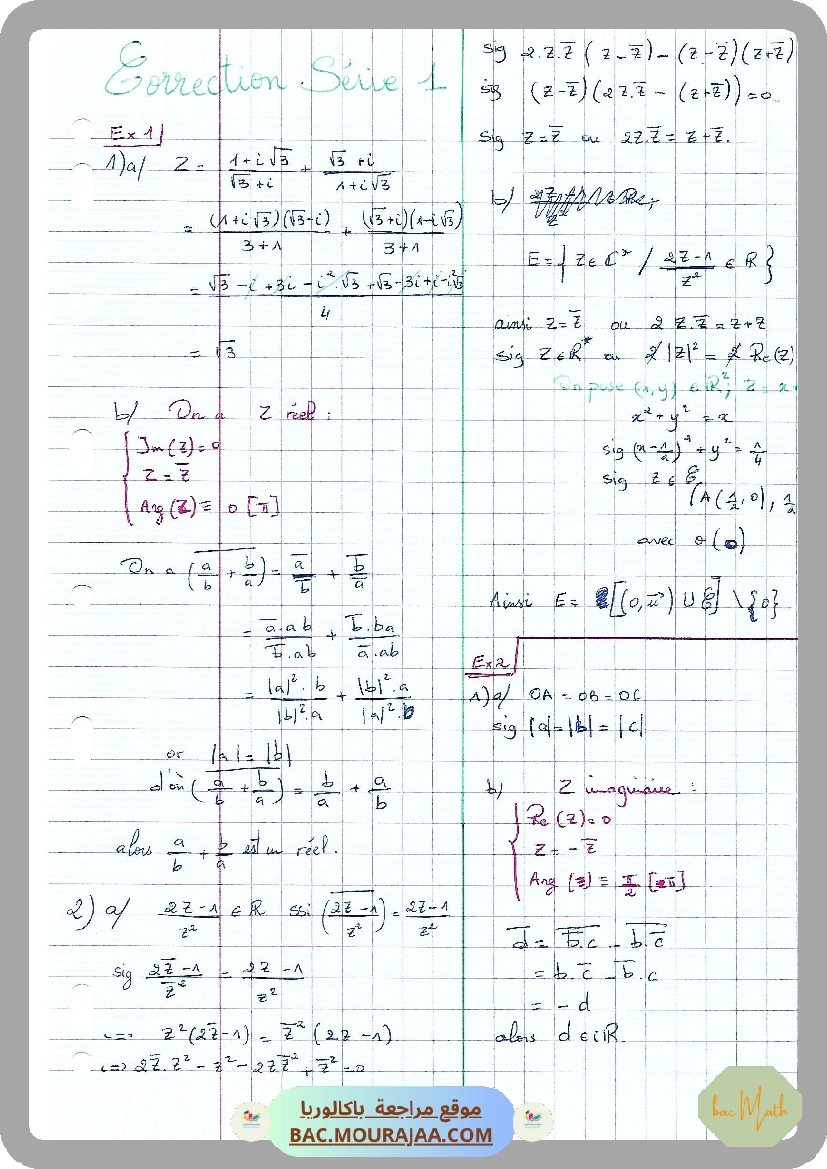 Correction Série 1
Ex 1
1) a/ Z = (1+i√3)/(√3+i) + (√3+i)/(1+i√3)
= (1+i√3)(√3-i)/(3+1) + (√3+i)(1-i√3)/(3+1)
= (√3 - i + 3i - i².√3 + √3 - 3i + i - i²√3)/4
= √3
b/ On a Z réel :
Im(Z) = 0
Z = Z̅
Arg(Z) ≡ 0 [π]
On a \overline{(a/b + b/a)} = a̅/b̅ + b̅/a̅
= a̅.ab/b̅.ab + b̅.ba/a̅.ab
= |a|².b/|b|².a + |b|².a/|a|².b
or |a| = |b|
d'où \overline{(a/b + b/a)} = b/a + a/b
alors a/b + b/a est un réel.
2) a/ (2Z-1)/z² ∈ ℝ ssi \overline{((2Z-1)/z²)} = (2Z-1)/z²
sig (2z̅-1)/z̅² = (2Z-1)/z²
<=> z²(2z̅-1) = z̅²(2z-1)
<=> 2z̅.z² - z² - 2z z̅² + z̅² = 0
sig 2.z.z̅ (z-z̅) - (z-z̅)(z+z̅)
sig (z-z̅)(2z.z̅ - (z+z̅)) = 0
sig z = z̅ ou 2z.z̅ = z+z̅.
b)
E = { z ∈ ℂ* / (2Z-1)/z² ∈ ℝ }
ainsi z = z̅ ou 2 z.z̅ = z+z̅
sig z ∈ ℝ* ou 2|z|² = 2 Re(z)
On pose (x,y) ∈ ℝ² ; Z = x+
x² + y² = x
sig (x-1/2)² + y² = 1/4
sig z ∈ ℰ
(A(1/2, 0), 1/2
avec
Ainsi E = [(0, u⃗) ∪ ℰ] \ {0}
Ex 2
1) a/ OA = OB = OC
sig |a| = |b| = |c|
b) Z imaginaire :
Re(Z) = 0
Z = -Z̅
Arg(z) ≡ π/2 [π]
d̅ = \overline{b̅.c} - \overline{b.c̅}
= b.c̅ - b̅.c
= - d
alors d ∈ iℝ.
موقع مراجعة باكالوريا
BAC.MOURAJAA.COM
bacMath